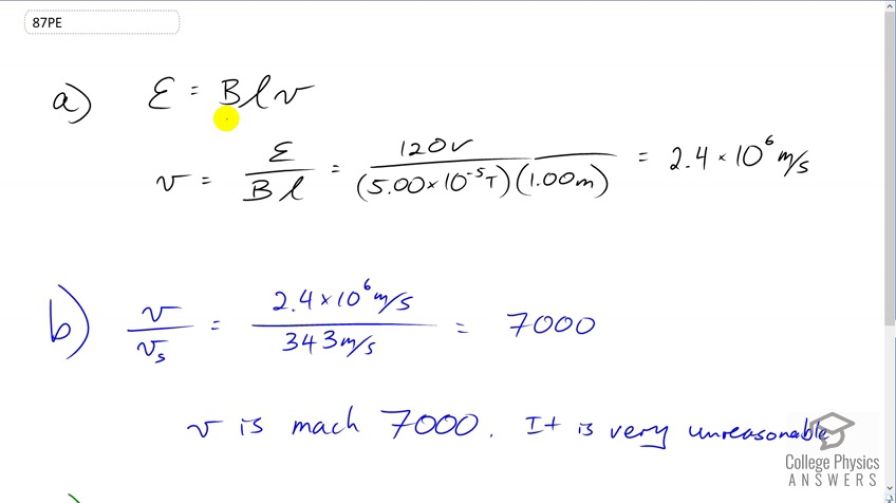 87PE
a) ℰ = Blv
v = ℰ / Bl = 120V / (5.00×10⁻⁵T)(1.00m) = 2.4×10⁶ m/s
b) v / vₛ = 2.4×10⁶ m/s / 343 m/s = 7000
v is mach 7000. It is very unreasonable
College Physics
ANSWERS